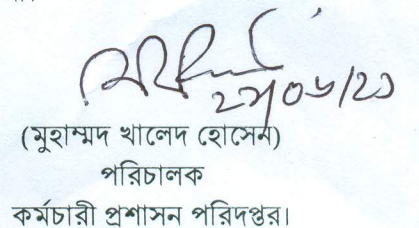 ২৭/০৬/২১
(মুহাম্মদ খালেদ হোসেন)
পরিচালক
কর্মচারী প্রশাসন পরিদপ্তর।